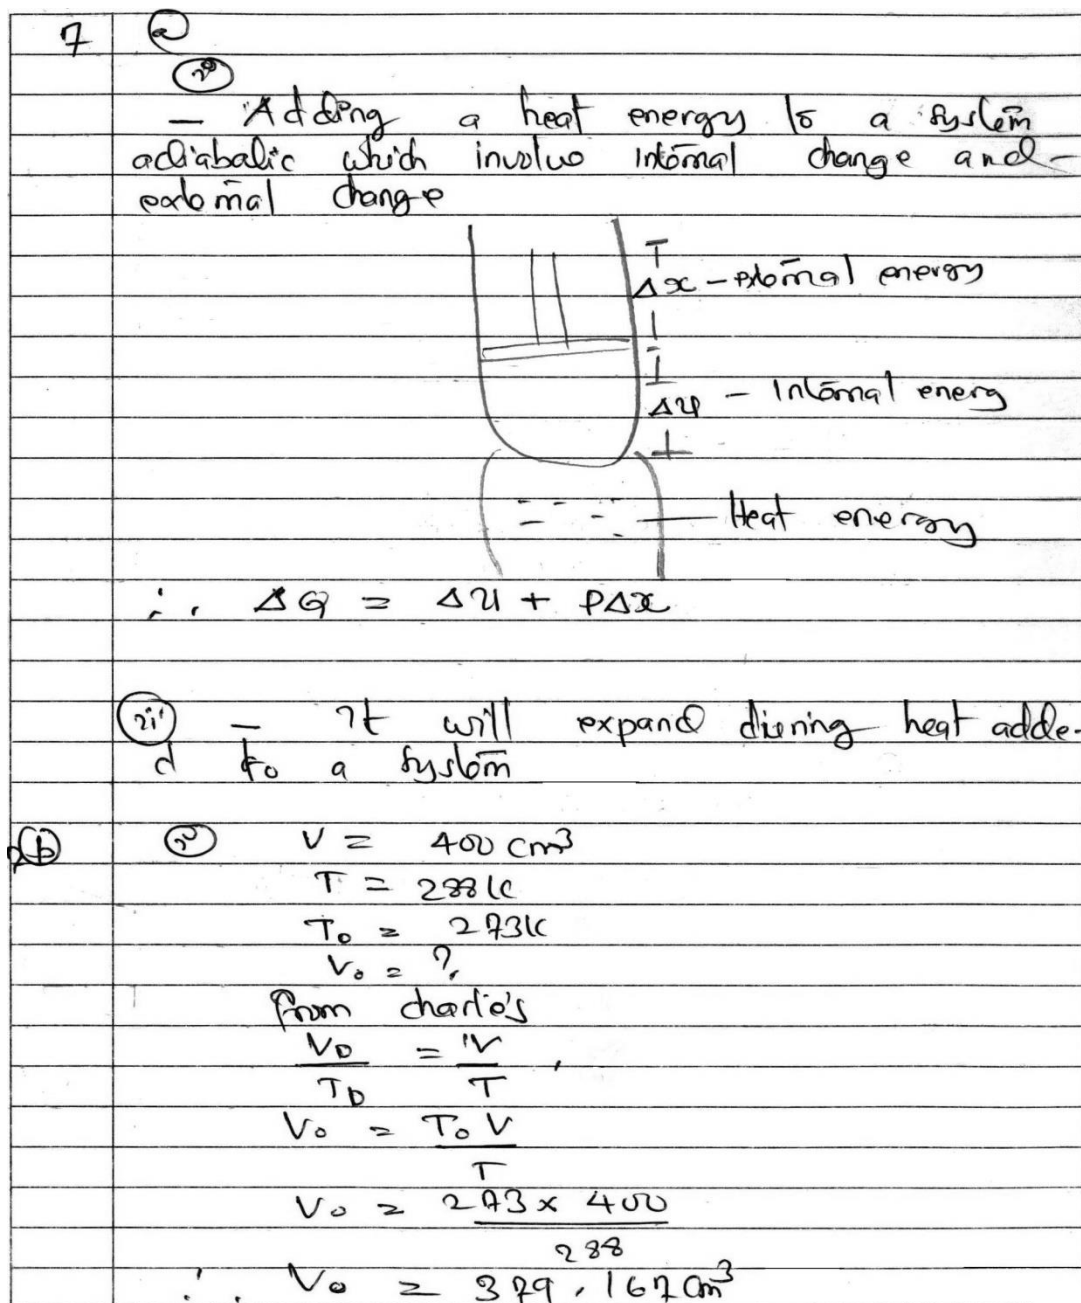 7 (a)
(i)
— Adding a heat energy to a system
adiabatic which involve internal change and
external change
Δx – external energy
Δu – Internal energ
Heat energy
∴ ΔQ = Δu + PΔx
(ii) — It will expand diering heat adde-
d to a system
(b) (i) V = 400 cm³
T = 288K
T₀ = 273K
V₀ = ?
from charle's
V₀/T₀ = V/T
V₀ = T₀V/T
V₀ = 273 × 400/288
∴ V₀ = 379.167cm³